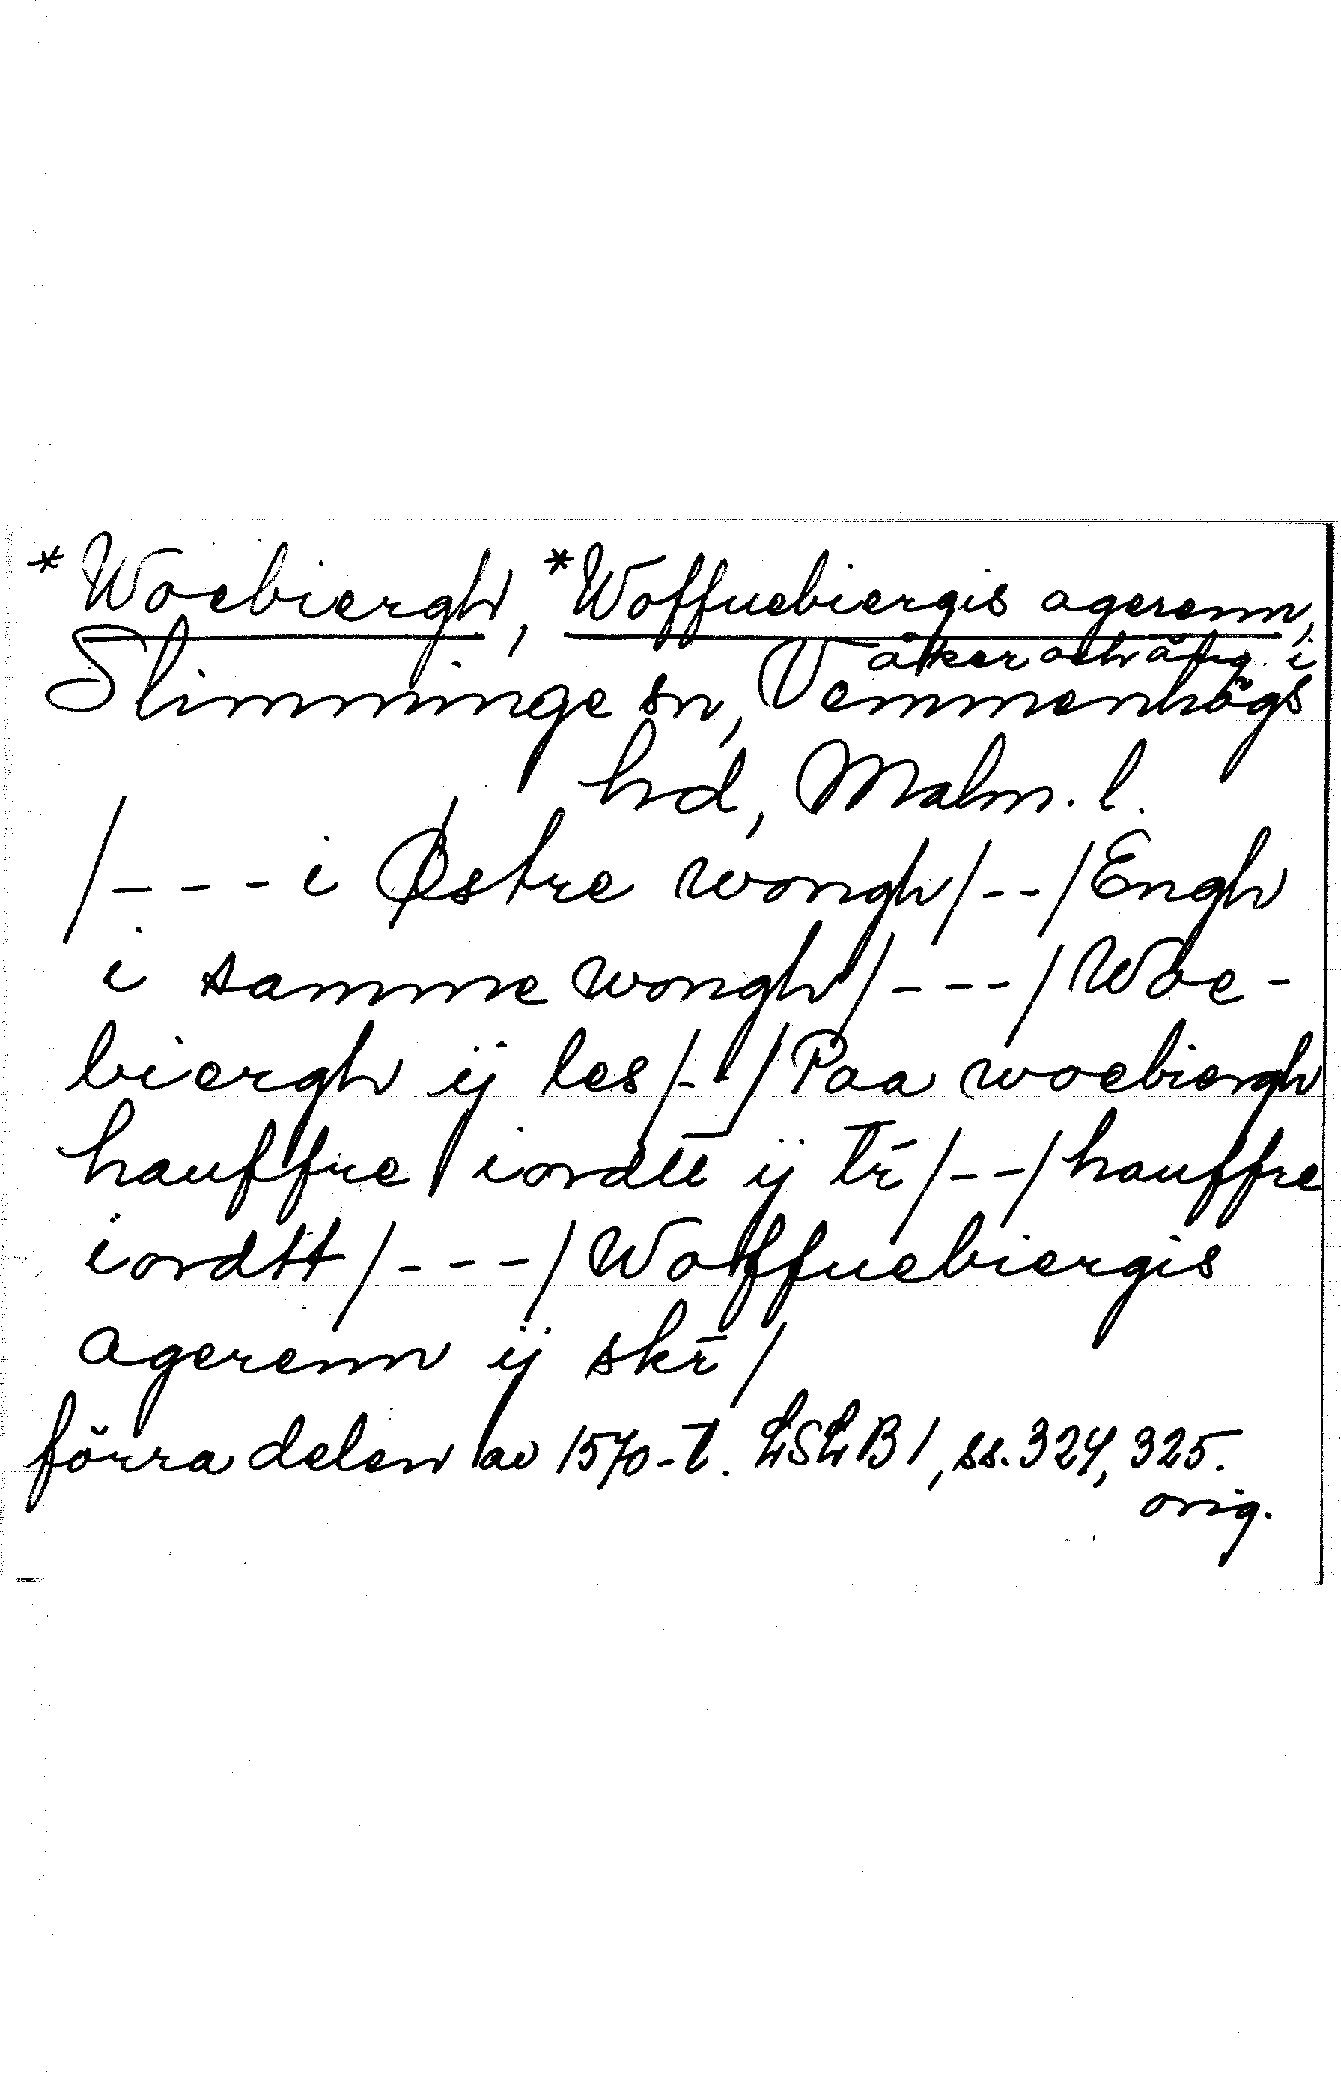 *Woebiergh, *Woffuebiergis agerenn,
åker och äng i
Slimminge sn, Vemmenhögs
hd, Malm. l.
/--- i Østre wongh/--/Engh
i samme wongh/---/Woe-
biergh ij les/--/Paa woebiergh
hauffre iordtt ij tr̄/--/hauffre
iordtt/---/Woffuebiergis
agerenn ij skr̄/
förra delen av 1570-t. LSLB1, ss. 324, 325.
orig.